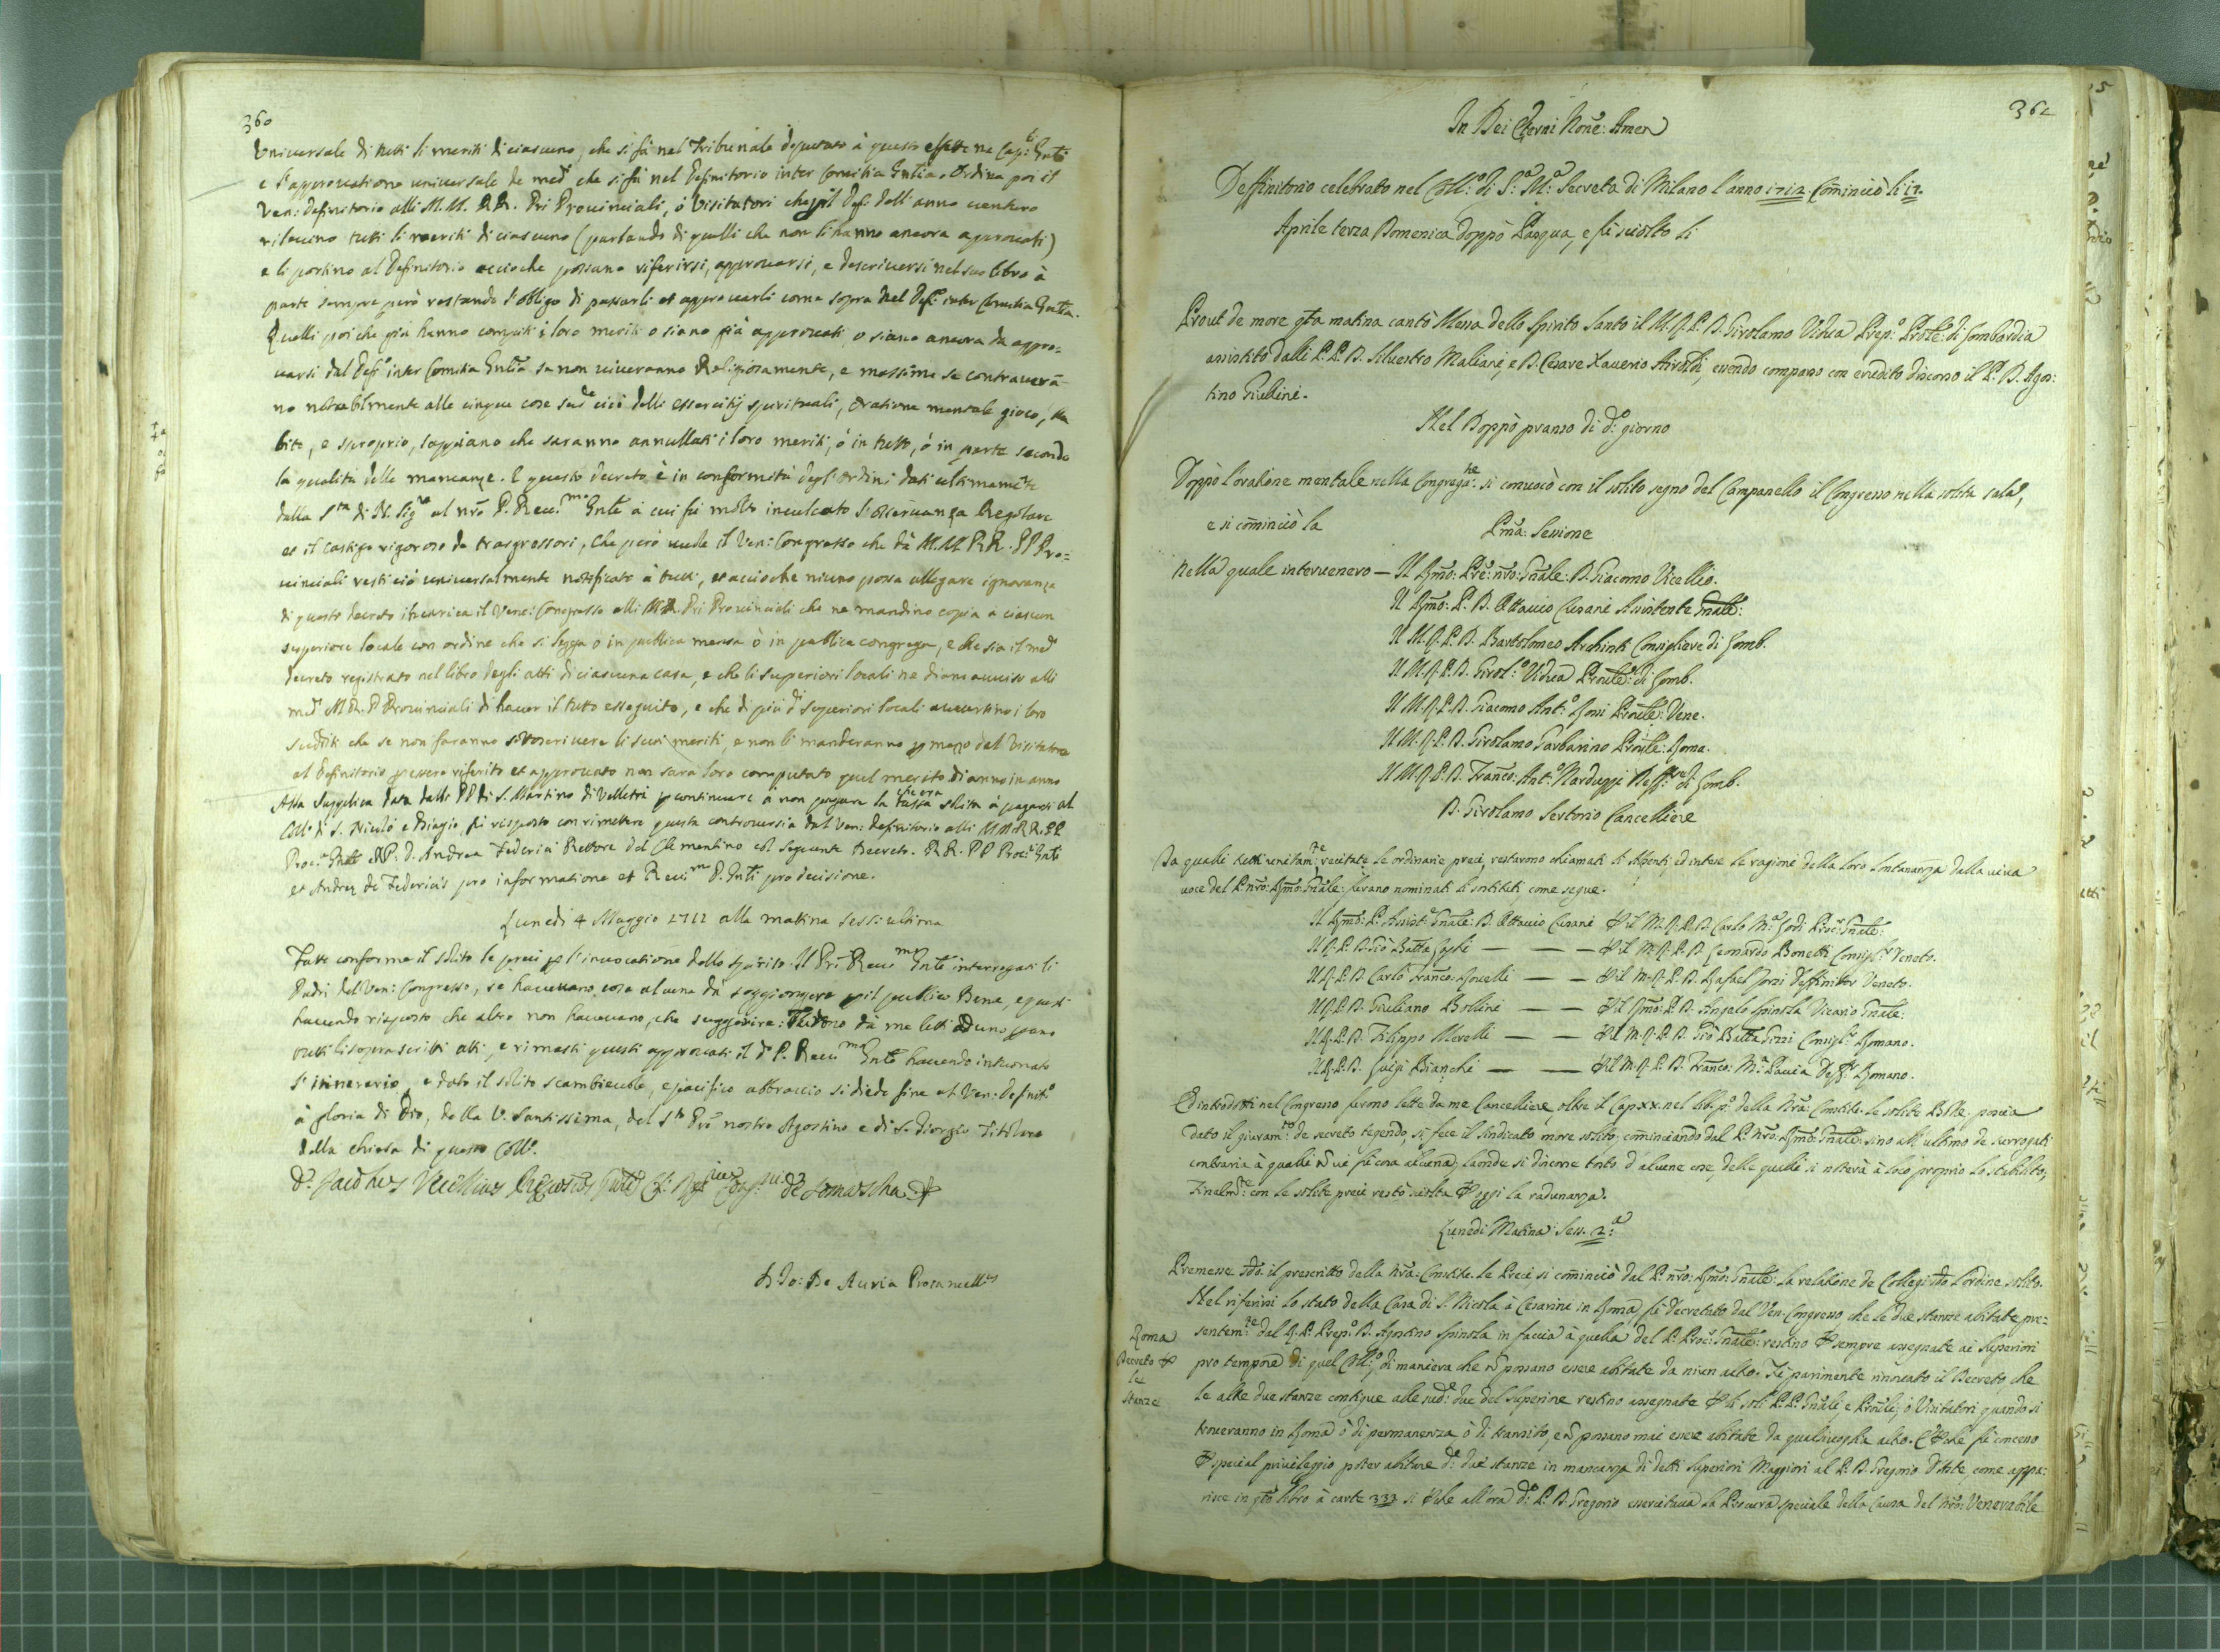 360
Universale di tutti li meriti di ciascuno, che si fà nel Tribunale deputato à questo effetto ne Cap:ti Gnli
e l'approuatione uniuersale de med.i che si fà nel Definitorio inter Comitia Gnlia. Ordina poi il
Ven: Definitorio alli M.M. RR. Pri Prouinciali, ò Visitatori che pil Def. dell'anno uenturo
rileuino tutti li meriti di ciascuno (parlando di quelli che non li hanno ancora approuati)
e li portino al Definitorio accioche possano riferirsi, approuarsi, e descriuersi nel suo libro à
parte sempre però restando l'obligo di passarli et approuarli come sopra nel Def.o inter Comitia Gnlia.
Quelli poi che già hanno compiti i loro meriti o siano già approuati, o siano ancora da appro=
uarsi dal Def.o inter Comitia Gnlia se non uiueranno Religiosamente, e massime se contrauerā=
no notabilmente alle cinque cose sud.e cioè delli essercitij spirituali, oratione mentale gioco, ha
bito, e sproprio, sappiano che saranno annullati i loro meriti, ò in tutto, ò in parte secondo
la qualità delle mancanze. E questo decreto è in conformità degl'ordini dati ultimamte
dalla S.tà di N. Sig.re al nro P. Reu.mo Gnle à cui fù molto inculcato l'osseruanza Regolare
et il castigo rigoroso de trasgressori, che però uuole il Ven: Congresso che dà M.M. RR. PP Pro=
uinciali resti ciò uniuersalmente notificato à tutti, et accioche niuno possa allegare ignoranza
di questo decreto incarica il Vene: Congresso alli MR. Pri Prouinciali che ne mandino copia a ciascun
superiore locale con ordine che si legga o in publica mensa ò in publica congrega, e che sia il med.o
decreto registrato nel libro degli atti di ciascuna casa, e che li superiori locali ne diano auuiso alli
med.i MR. P Prouinciali di hauer il tutto esseguito, e che di più d.i superiori locali auuertino i loro
sudditi che se non faranno sottoscriuere li suoi meriti, e non li manderanno p mezo del Visitatore
al Definitorio p essere riferito et approuato non sarà loro computato quel merito di anno in anno
Alla supplica data dalli PP di S. Martino di Velletri p continuare à non pagare la tassa che era solita à pagarsi al
Coll.o di S. Nicolò e Biagio, fù risposto con rimettere questa controuersia dal Ven: Definitorio alli M.M.RR.PP
Proc.r Gnle e P. D. Andrea Federici Rettore del Clementino col seguente Decreto. RR. PP Proc.r Gnli
et Andreę de Federicis pro informatione et Reu.mo P. Gnli pro decisione.
Lunedì 4 Maggio 1711 alla matina Sess: ultima
Fatte conforme il solito le preci p l'inuocatione dello spirito. Il Prē Reu.mo Gnle interrogati li
Padri del Ven: Congresso, se haueuano cosa alcuna dà soggiongere p il publico Bene, e questi
hauendo risposto che altro non haueuano, che suggerire: Furono dà me letti ad uno p uno
tutti li soprascritti atti, e rimasti questi approuati il d.o P. Reu.mo Gnle hauendo intuonato
l'itinerario, e dato il solito scambieuole, e pacifico abbraccio si diede fine al Ven: Definit.o
à gloria di Dio, della V. Santissima, del S.to Prē nostro Agostino e di S. Giorgio Titolare
della chiesa di questo Coll.o
D. Jacobus Vecellius Prępositus Gnlis de Somascha
D Jo: Ba Auria Procancell.s
362
In Dei Eterni Noñe: Amen
Deffinitorio celebrato nel Coll:o di S.a M.a Secreta di Milano l'anno 1712 Comincìo li 17
Aprile terza Domenica doppò Pasqua, e fù sciolto li
Prout de more qta matina cantò Messa dello Spirito Santo il M.R.P.D. Girolamo Vidua Prep.o Prōle: di Lombardia
assistito dalli P.P.D. Siluestro Maliani, e D. Cesare Xauerio Airoldi, essendo comparso con erudito discorso il P. D. Agos:
tino Giulini.
Nel Doppò pranso di d.o giorno
Doppò l'oratione mentale nella Congreg.ne si conuocò con il solito segno del Campanello il Congresso nella solita sala,
e si cominciò la
Pma: Sessione
Nella quale interuenero — Il Rmo: Prē: nro: Gnale: D. Giacomo Vicellio.
Il Rmo: P. D. Ottauio Cusani Assistente Gnale:
Il M.R.P.D. Bartolomeo Archinti Consigliere di Lomb.
Il M.R.P.D. Girol:o Vidua Prōule: di Lomb.
Il M.R.P.D. Giacomo Ant:o Rossi Prōule: Vene.
Il M.R.P.D. Girolamo Garbarino Prōule: Roma.
Il M.R.P.D. Franco: Ant:o Narduzzi Deff:re di Lomb.
D. Girolamo Sertorio Cancelliere
Da quali tutti unitam:te recitate le ordinarie preci, restarono chiamati li Assenti, ed intese le ragioni della loro lontananza dalla uiua
uoce del P. nro: Rmo: Gnale: furano nominati li sostituti come segue.
Il Rmo: P. Assist:e Gnale: D. Ottauio Cusani P il M.R.P.D. Carlo M:a Lodi Proc: Gnale:
Il R.P.D. Gio Batta Caspi — — — P il M.R.P.D. Leonardo Bonetti Consigl:r Veneto.
Il R.P.D. Carlo Franco: Rouelli — — P il M.R.P.D. Rafael Sonzi Deffinitor Veneto.
Il R.P.D. Giuliano Bollini — — P il Rmo: P.D. Angelo Spinola Vicario Gnale:
Il R.P.D. Filippo Merelli — — P il M.R.P.D. Gio Batta Gizzi Consigl:r Romano.
Il R.P.D. Luigi Bianchi — — P il M.R.P.D. Franco: M:a Pauia Deff:r Romano.
Ed introdotti nel Congresso furono lette da me Cancelliere, oltre il Cap xx. nel lib. p.o della nra: Constit. le solite Bolle. poscia
dato il giuram:to de secreto tegendo, si fece il Sindicato more solito, cominciando dal P. nro: Rmo: Gnale: sino all'ultimo de surrogati
contraria à quali nō ui fù cosa alcuna; laonde si discorse tosto d'alcune cose, delle quali si noterà à loco proprio lo stabilito,
Finalm:te con le solite preci restò sciolta P oggi la radunanza.
Lunedì Matina: Sess. 2:a
Premesse sdō. il prescritto della nra: Constit. le Preci si cominciò dal P. nro: Rmo: Gnale: la relatione de Collegi sdō l'ordine solito.
Nel riferirsi lo stato della Casa di S. Nicola à Cesarini in Roma fù decretato dal Ven. Congresso che le due stanze abitate pre:
sentem:te dal R.P. Prep:o D. Agostino Spinola in faccia à quella del P. Proc: Gnale: restino P sempre assegnate ai Superiori
pro tempore di quel Coll:o, di maniera che nō possano essere abitate da niun altro. Fù parimente rinouato il Decreto che
le altre due stanze contigue alle sud:e due del Superiore restino assegnate P li soli P.P. Gnali, e Prōuli, ò Visitatori quando si
troueranno in Roma ò di permanenza ò di transito, e nō possano mai essere abitate da qualsiuoglia altro. E P che fù concesso
P special priuileggio poter abitare d:e due stanze in mancanza di detti Superiori Maggiori al P. D. Gregorio Votite, come appa:
risce in qto libro à carte 333 si P che all'ora d:o P. D. Gregorio essercitaua la Procura speciale della Causa del nro: Venerabile
Roma
Decreto P
le
Stanze